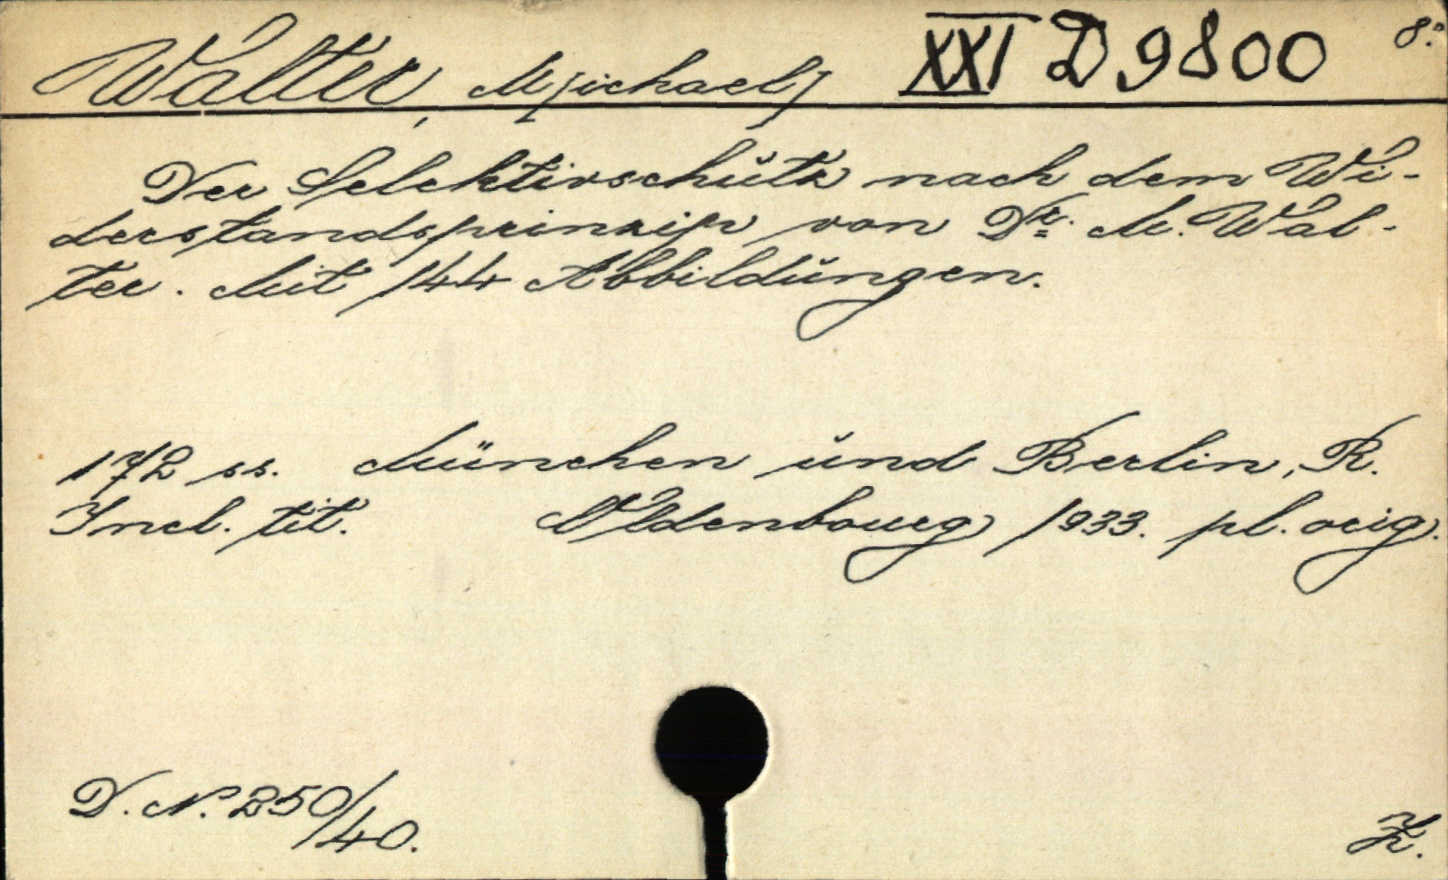 Walter, M[ichael] XXI D 9800 8°.
Der Selektivschutz nach dem Wi-
derstandsprinzip von Dr. M. Wal-
ter. Mit 144 Abbildungen.
172 ss. München und Berlin, R.
Incl. tit. Oldenbourg 1933. pl. orig.
D. N. 250/40.